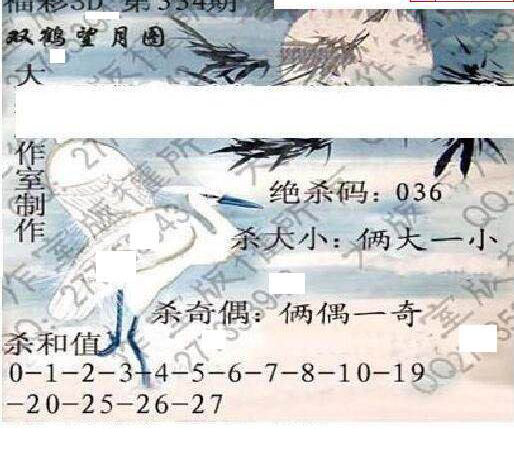 福彩3D 第334期
双鹤望月图
大
作室制作
绝杀码：036
杀大小：俩大一小
杀奇偶：俩偶一奇
杀和值
0-1-2-3-4-5-6-7-8-10-19
-20-25-26-27